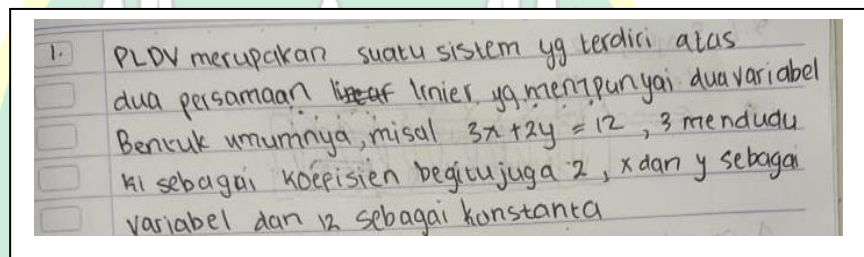 1. PLDV merupakan suatu sistem yg terdiri atas
dua persamaan linear linier yg mempunyai dua variabel
Bentuk umumnya, misal 3x + 2y = 12, 3 mendudu
ki sebagai koefisien begitu juga 2, x dan y sebagai
variabel dan 12 sebagai konstanta